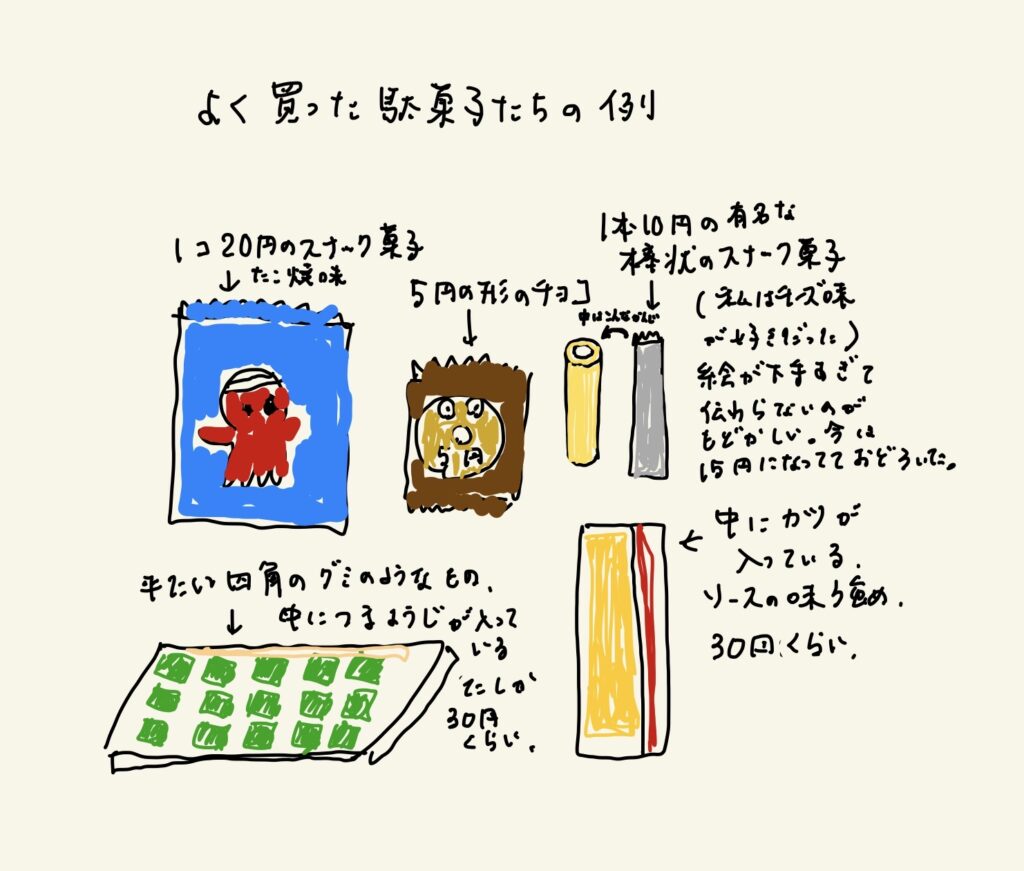 よく買った駄菓子たちの例
1コ20円のスナック菓子
たこ焼味
5円の形のチョコ
5円
中はこんなかんじ
1本10円の有名な
棒状のスナック菓子
(私はチーズ味
が好きだった)
絵が下手すぎて
伝わらないのが
もどかしい。今は
15円になってておどろいた。
平たい四角のグミのようなもの、
中につまようじが入って
いる
たしか
30円
くらい、
中にカツが
入っている、
ソースの味強め、
30円くらい、